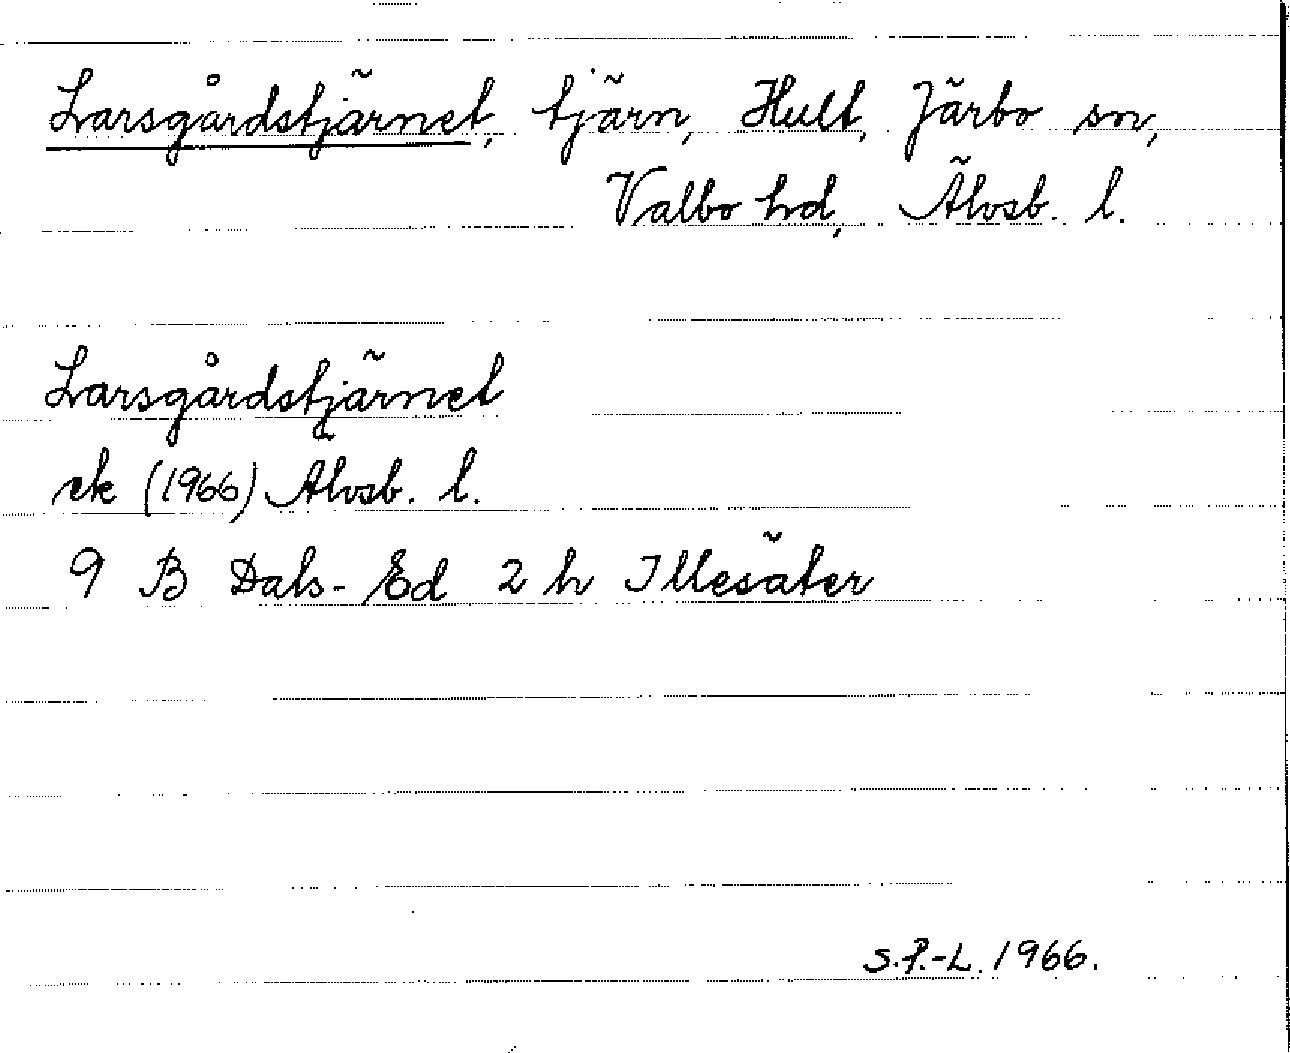 Larsgårdstjärnet, tjärn, Hult, Järbo sn,
Valbo hd, Älvsb. l.
Larsgårdstjärnet
ek (1966) Älvsb. l.
9 B Dals-Ed 2 h Illesäter
S.P.-L. 1966.